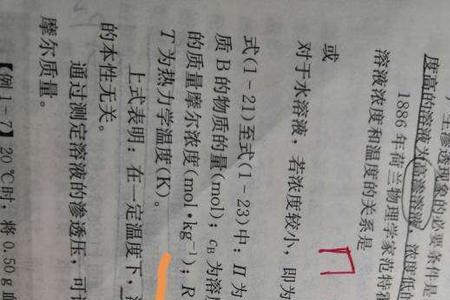 生渗透现象的必要条件是
度高的溶液
浓度低的
1888 年荷兰物理学家范特
溶液浓度和温度的关系是
或
对于水溶液，若浓度较小，即为
式(1-21)至式(1-23)中：Π为
质 B 的物质的量(mol)；c_B 为溶
的质量摩尔浓度(mol·kg⁻¹)；R
T 为热力学温度(K)。
上式表明：在一定温度下，
的本性无关。
通过测定溶液的渗透压，可
摩尔质量。
【例 1-7】20℃时，将 0.50 g